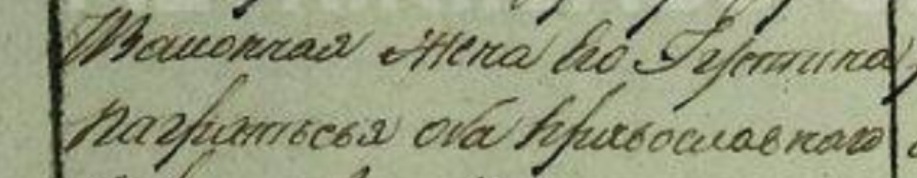 Законная жена его Іустина
Пагратьева оба православнаго